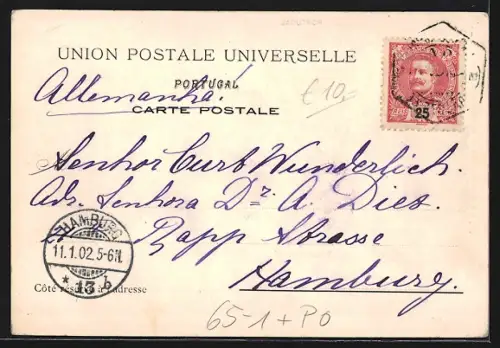 UNION POSTALE UNIVERSELLE
PORTUGAL
Allemanha!
€ 10,
CARTE POSTALE
25
Senhor Curt Wunderlich.
Adr. Senhora Dr. A. Dies.
Rapp Strasse
Hamburg.
HAMBURG
11.1.02.5-6N.
* 13 b
Côté réservé à l'adresse
65-1+PO